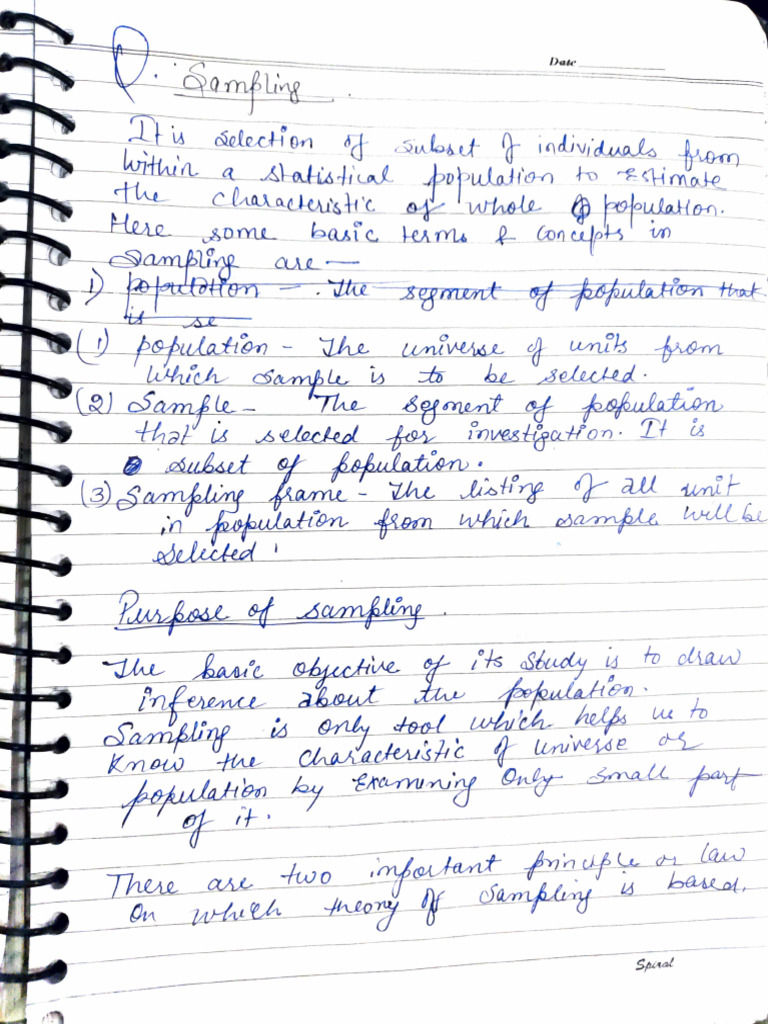 Date
Q. Sampling.
It is selection of subset of individuals from
within a statistical population to estimate
the characteristic of whole population.
Here some basic terms & concepts in
sampling are —
i) population - . The segment of population that
is se
(1) population - The universe of units from
which sample is to be selected.
(2) Sample - The segment of population
that is selected for investigation. It is
subset of population.
(3) Sampling frame - The listing of all unit
in population from which sample will be
selected.
Purpose of sampling.
The basic objective of its study is to draw
inference about the population.
Sampling is only tool which helps us to
know the characteristic of universe or
population by examining only small part
of it.
There are two important principle or law
on which theory of sampling is based.
Spiral